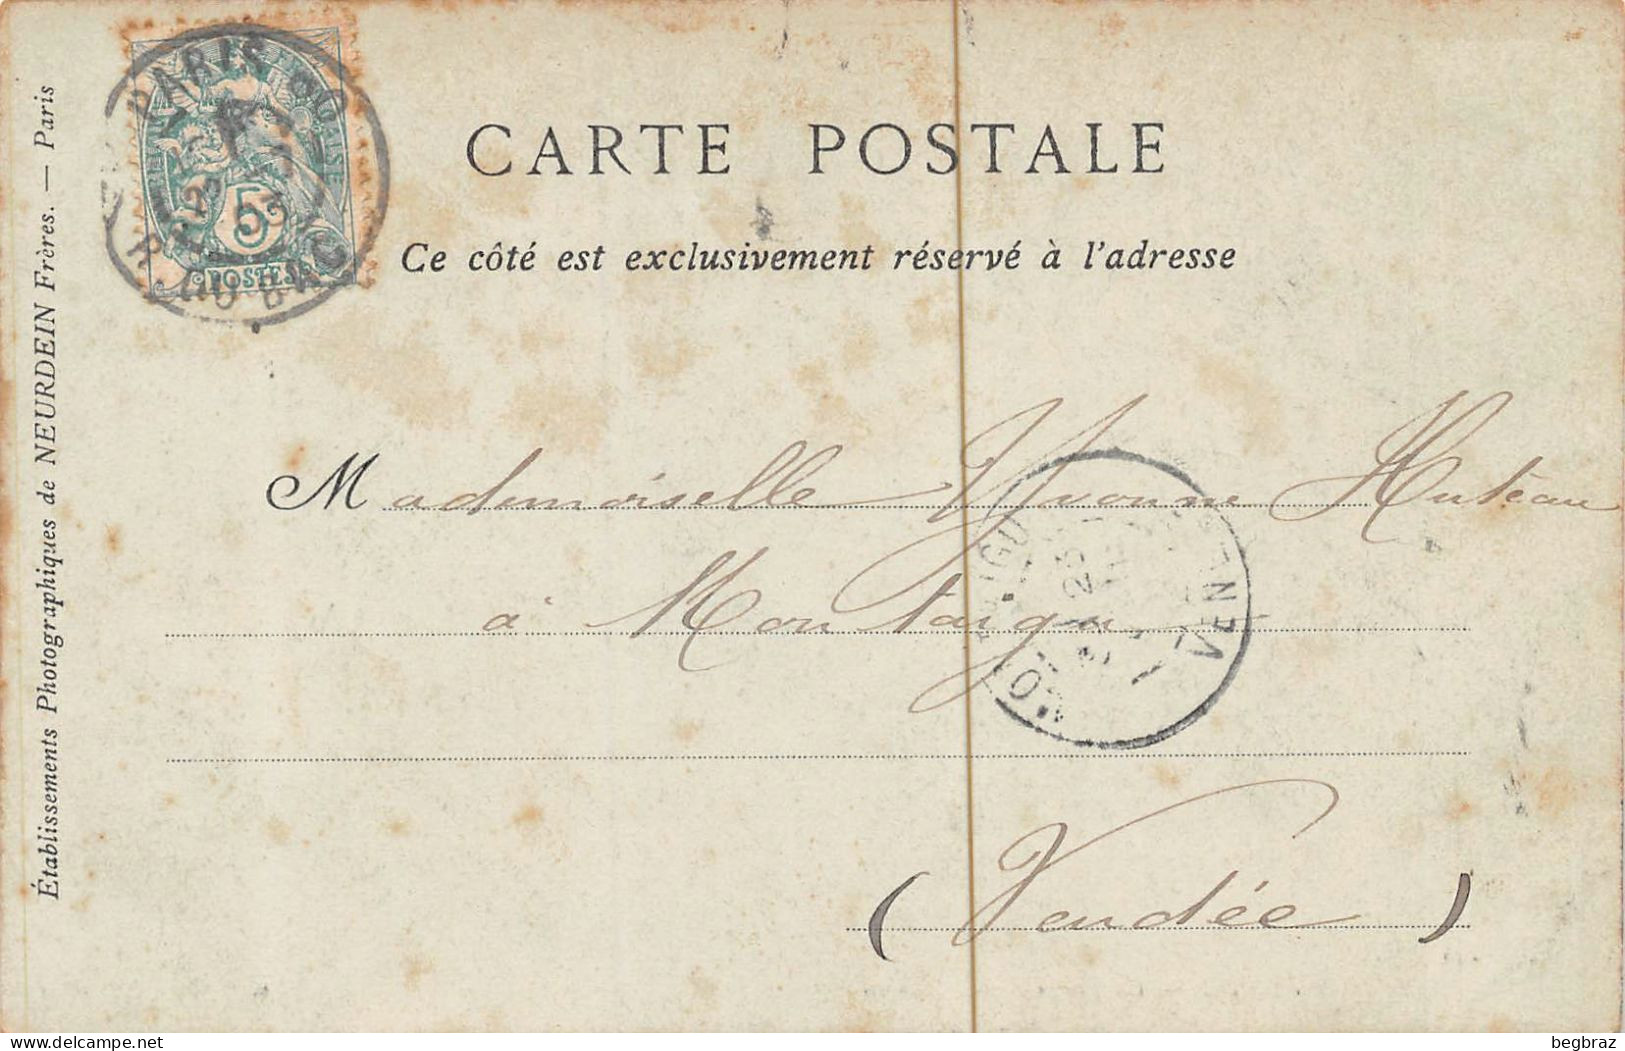 PARIS
5
POSTES
CARTE POSTALE
Ce côté est exclusivement réservé à l'adresse
Établissements Photographiques de NEURDEIN Frères. — Paris
Mademoiselle Yvonne Huteau
à Montaigu
(Vendée)
begbraz